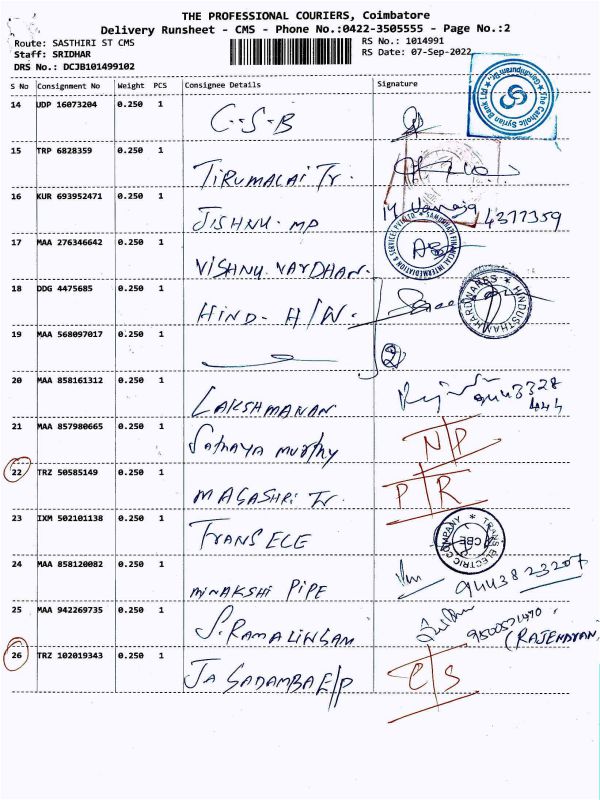 THE PROFESSIONAL COURIERS, Coimbatore
Delivery Runsheet - CMS - Phone No.:0422-3505555 - Page No.:2
Route: SASTHIRI ST CMS
RS No.: 1014991
Staff: SRIDHAR
RS Date: 07-Sep-2022
DRS No.: DCJB101499102
S No Consignment No Weight PCS Consignee Details Signature
14 UDP 16073204 0.250 1 C-S-B
The Catholic Syrian Bank Ltd
15 TRP 6828359 0.250 1 TIRUMALAI Tr.
16 KUR 693952471 0.250 1 JISHNU. MP 4377359
17 MAA 276346642 0.250 1 VISHNU VARDHAN.
18 DDG 4475685 0.250 1 HIND- H/W.
HINDUSTHAN HARDWARES
19 MAA 568097017 0.250 1 2
20 MAA 858161312 0.250 1 LAKSHMANAN 9443328
444
21 MAA 857980665 0.250 1 Sathaya murthy N/P
22 TRZ 50585149 0.250 1 MAGASHRI Tr. P/R
23 IXM 502101138 0.250 1 TRANS ELE
TRANS ELECTRIC COMPANY CBE
24 MAA 858120082 0.250 1 MINAKSHI PIPE 9443823207
25 MAA 942269735 0.250 1 S. RAMALINGAM
(RAJENDRAN)
26 TRZ 102019343 0.250 1 JAGADAMBA E/P C/S